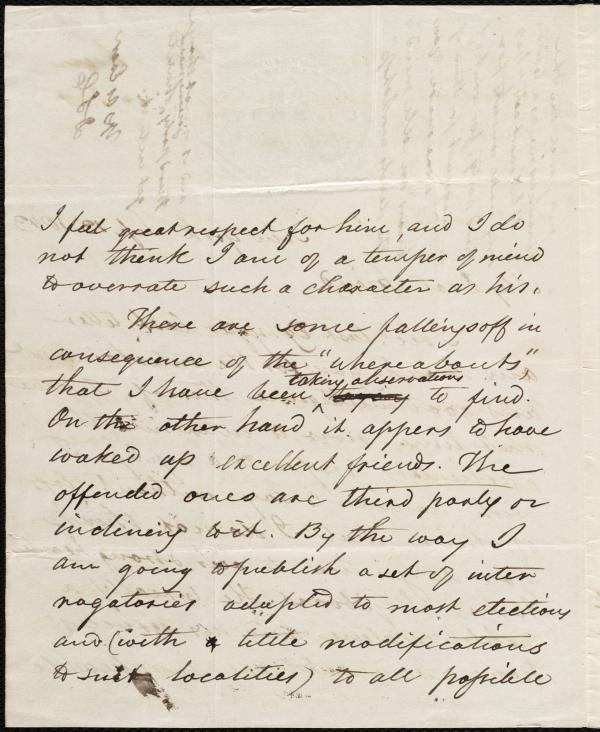 I feel great respect for him, and I do
not think I am of a temper of mind
to overrate such a character as his.
There are some fallings off in
consequence of the "whereabouts",
that I have been taking observations to find.
On the other hand it appers to have
waked up excellent friends. The
offended ones are third party or
inclining to it. By the way I
am going to publish a set of inter
rogatories adapted to most elections
and (with little modifications
to suit localities) to all possible